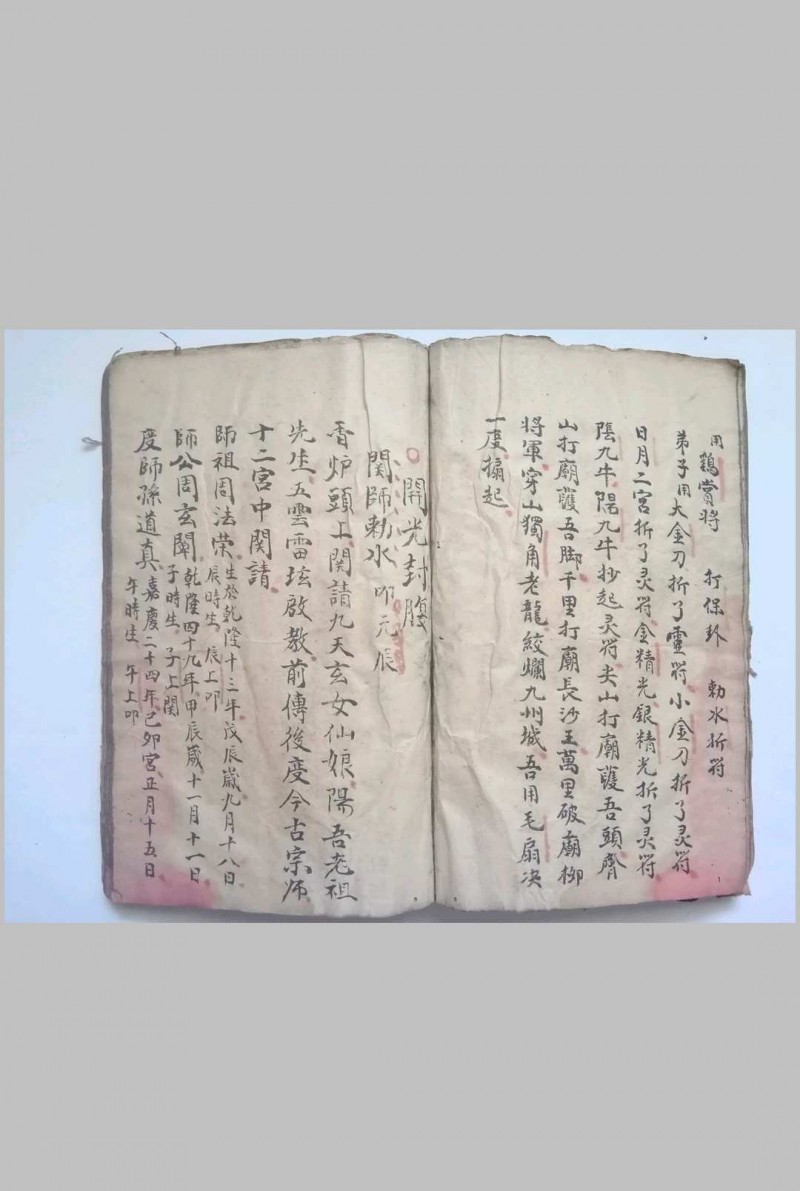 用鷄賞將 打保卦 勅水折符
弟子用大金刀折了靈符小金刀折了灵符
日月二宮折了灵符金精光銀精光折了灵符
陰九牛陽九牛抄起灵符尖山打廟護吾頭齊
山打廟護吾脚千里打廟長沙王萬里破廟柳
將軍穿山獨角老龍絞爛九州城吾用毛扇决
一度搧起
開光封腹
関師勅水 叩元辰
香炉頭上関請九天玄女仙娘陽吾老祖
先生五雲雷坛啟教前傳後度今古宗师
十二宮中関請
師祖周法荣生於乾隆十三年戊辰歲九月十八日
辰時生 辰上叩
師公周玄闡乾隆四十九年甲辰歲十一月十一日
子時生 子上関
度師孫道真嘉慶二十四年己卯宮正月十五日
午時生 午上叩